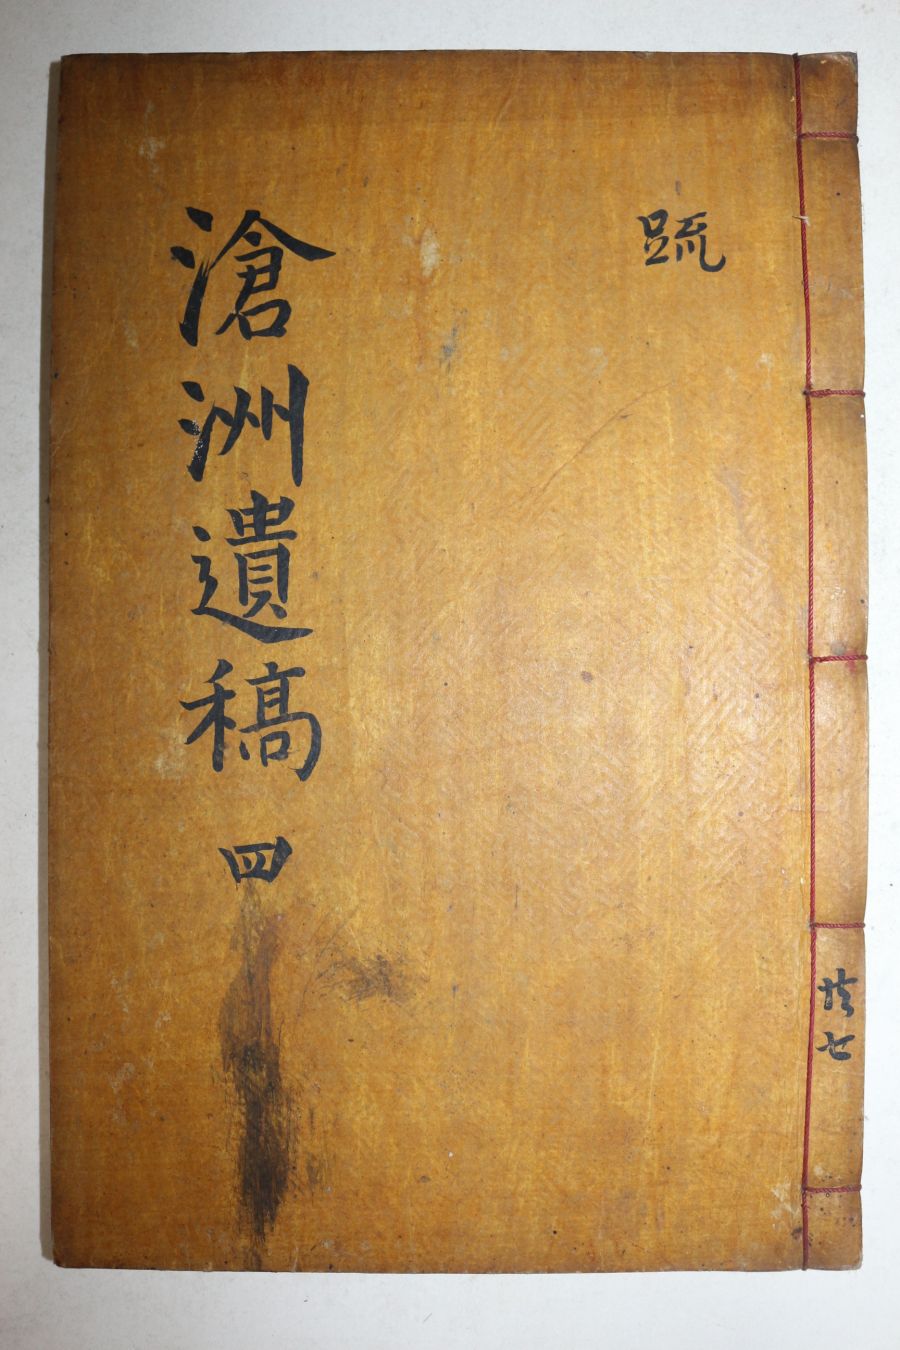 疏
滄洲遺稿 四
共七